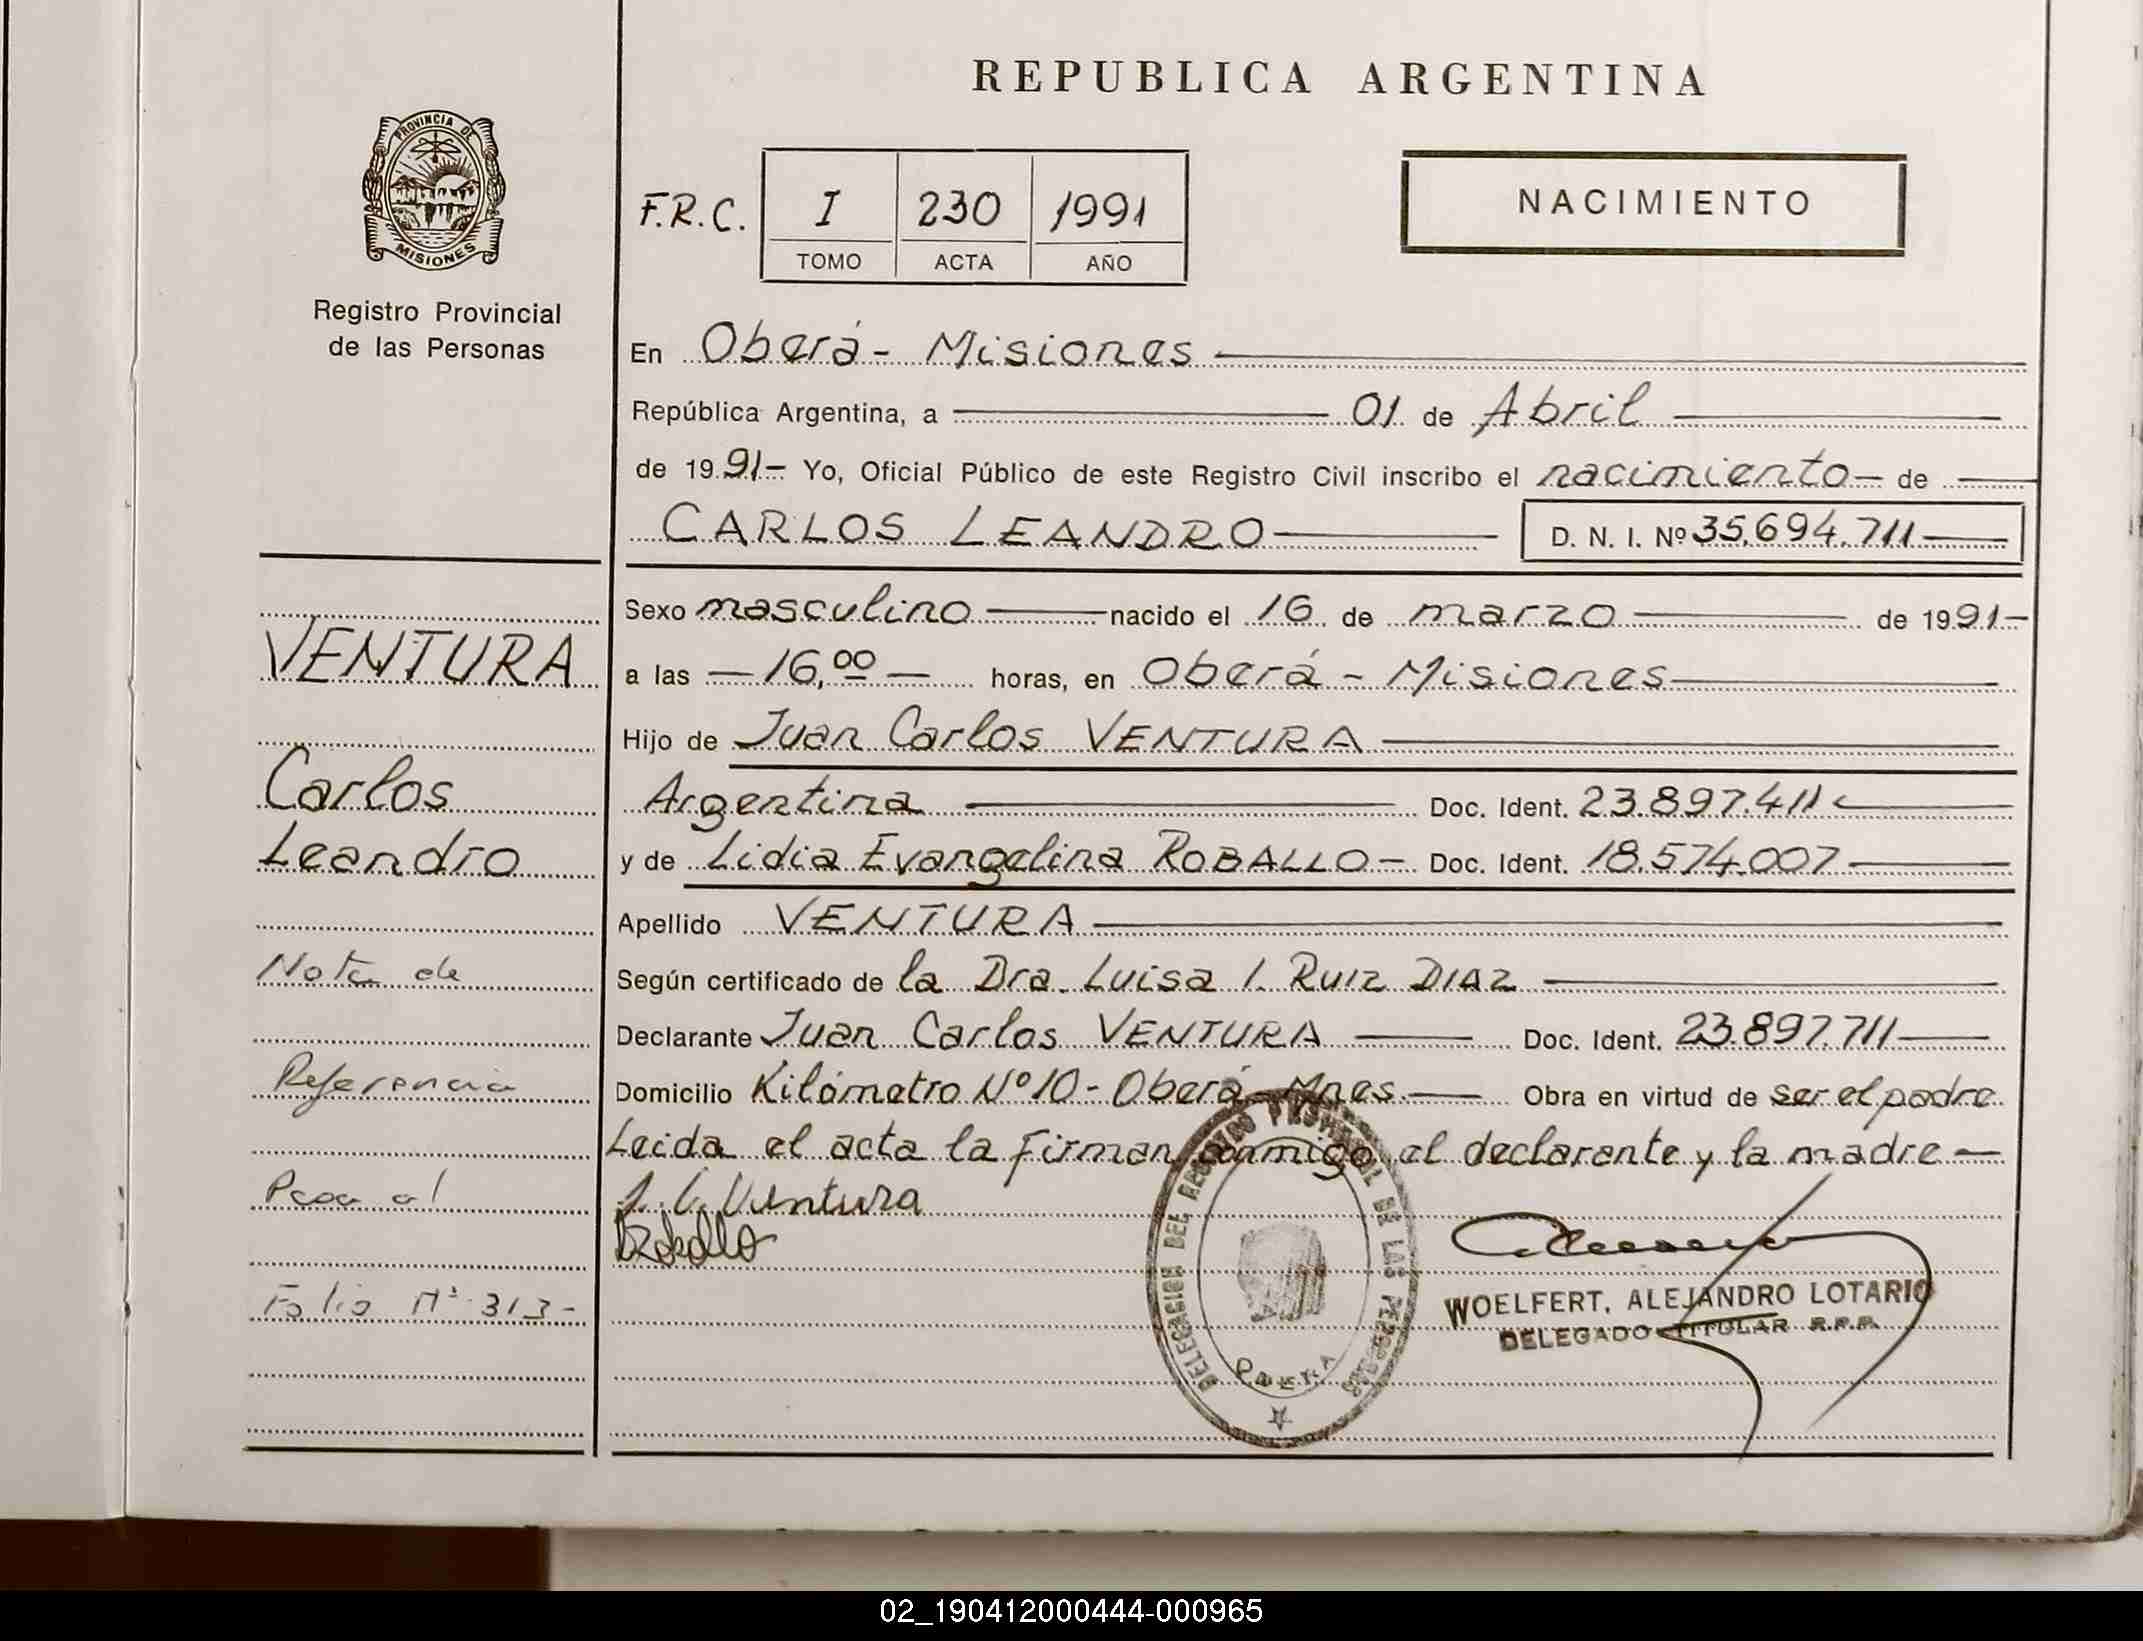 REPUBLICA ARGENTINA
PROVINCIA DE
MISIONES
Registro Provincial
de las Personas
F.R.C. I 230 1991
TOMO ACTA AÑO
NACIMIENTO
En Oberá - Misiones
República Argentina, a 01 de Abril
de 1991- Yo, Oficial Público de este Registro Civil inscribo el nacimiento - de
CARLOS LEANDRO D. N. I. Nº 35.694.711
Sexo masculino nacido el 16 de marzo de 1991-
a las - 16,00 - horas, en Oberá - Misiones
Hijo de Juan Carlos VENTURA
Argentina Doc. Ident. 23.897.411
y de Lidia Evangelina ROBALLO - Doc. Ident. 18.574.007
Apellido VENTURA
Según certificado de la Dra. Luisa I. RUIZ DIAZ
Declarante Juan Carlos VENTURA Doc. Ident. 23.897.711
Domicilio Kilómetro Nº 10 - Oberá - Mnes. Obra en virtud de ser el padre
Leida el acta la firman conmigo el declarante y la madre -
J. C. Ventura
Roballo
DELEGACION DEL REGISTRO PROVINCIAL DE LAS PERSONAS
OBERA
WOELFERT, ALEJANDRO LOTARIO
DELEGADO TITULAR R.P.P.
VENTURA
Carlos
Leandro
Nota de
Referencia
Pasa al
Folio Nº 313-
02_190412000444-000965